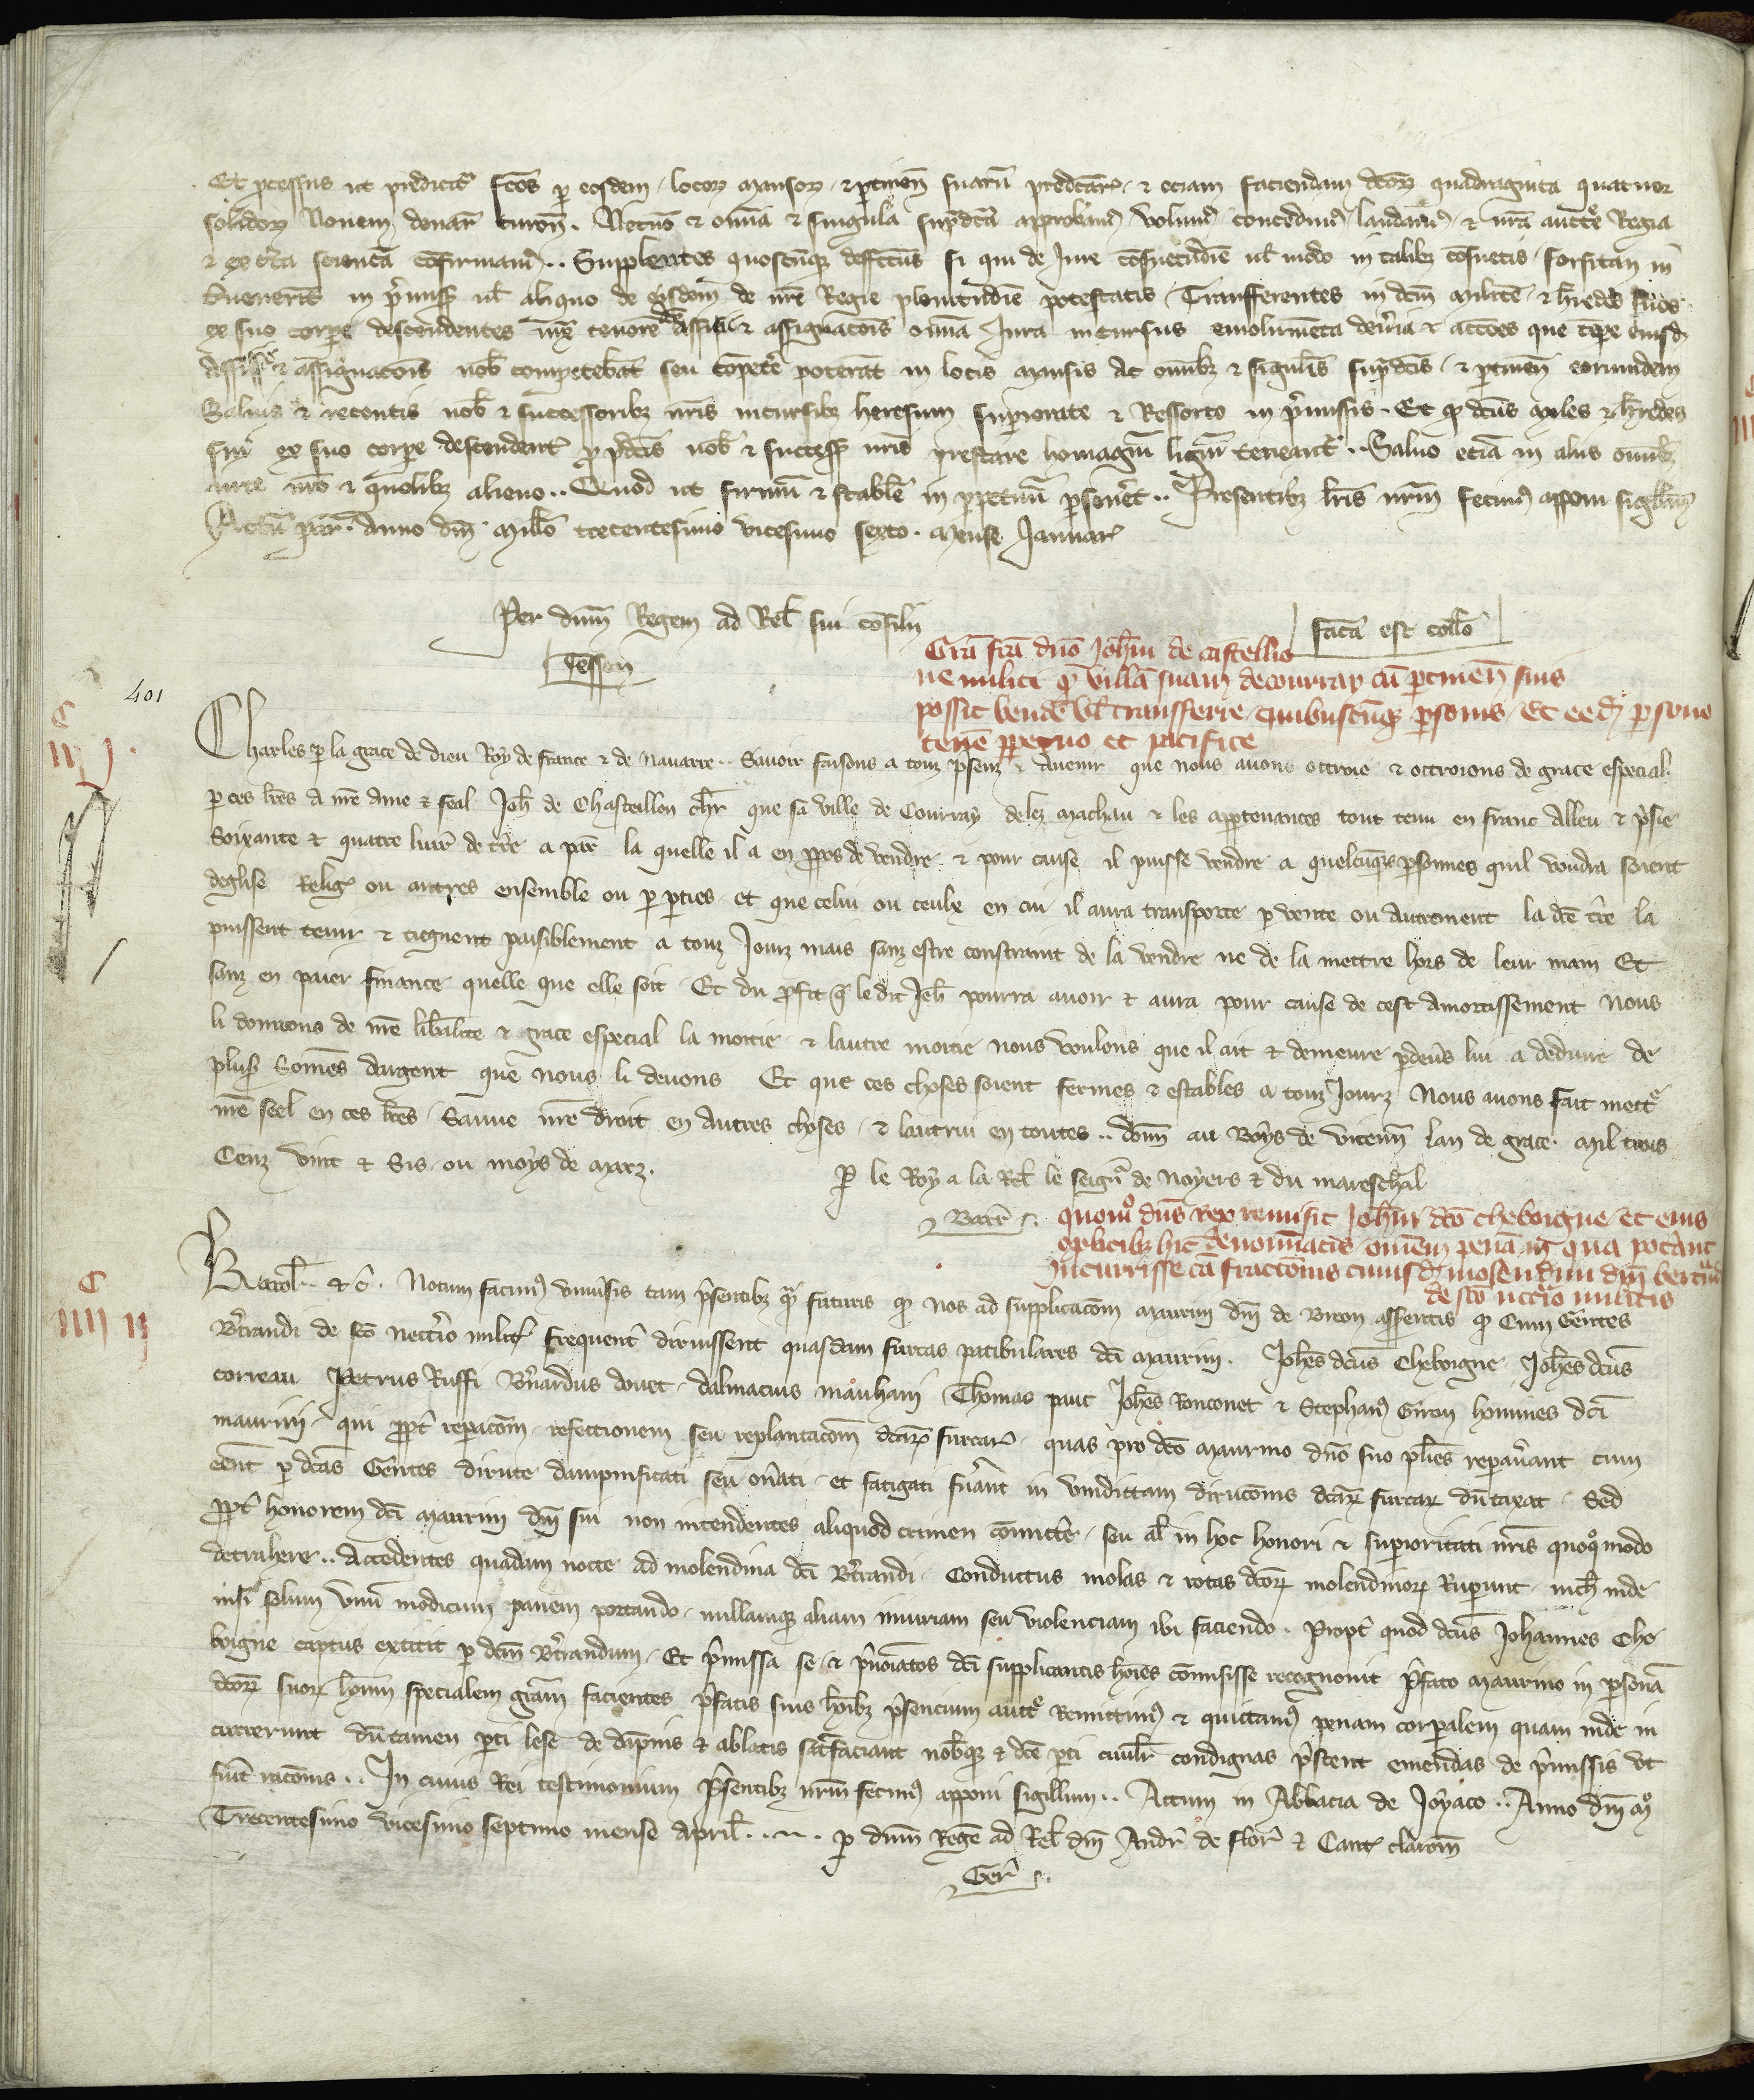 Et processus ut predicitur fcos p eosdem locor mansor et ptineñ suarū predcar et eciam faciendam dcor quadraginta quatuor
solidor Novem denar turoñ. Nec nō et omīa et singula supdcā approbam volum concedim laudam et nrā auctte Regia
et ex certa sciencā cōfirmam.. Supplentes quoscūq deffectus si qui de Jure cōsuetudīe ul modo in talibz cōsuetis forsitan in
tvenerīt in pmiss ul aliquo de eisdem de nrē Regie plenitudīe potestatis Transferentes in dcm militē et hredes suos
ex suo corpe descendentes tenore assisie et assignacois omīa Jura incursus emolumēta deveria et accoēs que tpe eiusd
Assisie et assignacois nob competebāt seu cōpetē poterāt in locis mansis ac omībz et sigulis supdcīs et ptineñ eorumdem
Salvis et retentis nob et successoribz nrīs incursibz heresum supioritate et Ressorto in pmissis. Et q dcūs miles et hredes
sui ex suo corpe descendent p pdcis nob et success nrīs prestare homagiū ligiū teneant. Salvo eciā in aliis omībz
iure nrō et quolibz alieno.. Quod ut firmū et stabīle in ppetuū psevet.. Presentibz lrīs nrūm fecim apponi sigillum
Actū par anno dm millo trecentesimo vicesimo sexto. mense Januar
Per dnum Regem ad Rel sui cōsilii
facta est collo
Tesson
Grā fcā dno Johi de castellio
ne militi q villā suam decourray cū ptineñ suis
possit vendē vl transferre quibuscūq psonis Et eed psone
tenē ppetuo et pacifice
401
Charles p la grace de dieu Roy de france et de navarre.. Savoir faisons a touz psenz et avenir que nous avons ottroie et ottroions de grace especial
p ces lres a nrē ame et feal Joh de Chasteillon chr que sa ville de Courray delez machau et les aptenances tout tenu en franc alleu et psie
Soixante et quatre livr de tre a par la quelle il a en ppos de vendre et pour cause il puisse vendre a quelcuqs psonnes quil voudra soient
deglise Relig ou autres ensemble ou p pties et que celui ou ceulx en cui il aura transporte p vente ou autrement la dce tre la
puissent tenir et tiegnent paisiblement a touz Jourz mais sanz estre constraint de la vendre ne de la mettre hors de leur main Et
sanz en paier finance quelle que elle soit Et du pfit q le dit Jeh pourra avoir et aura pour cause de cest amortissement nous
li donnons de nrē libalite et grace especial la moitie et lautre moitie nous voulons que il ait et demeure pdevs lui a deduire de
plus Sommes dargent que nous li devons Et que ces choses soient fermes et estables a touz Jourz Nous avons fait mettre
nrē seel en ces lres Sauve nrē droit en autres choses et lautrui en toutes.. donn au Boys de vicenn lan de grace mil trois
Cenz vint et Sis ou moys de marz.
P le Roy a la Rel le seignr de Noyers et du mareschal
quom dns rex remisit Johi dco cheboigne et eius
cplicibz hic denominatis omem penā in qua potant
incurrisse cā fraccois cuiusd molendini dni bertrādi
de sco nectrio militis
Karol et c. Notum facim univsis tam psentibz qua futuris q nos ad supplicacom maurini dni de Breon asserentis q Cum Gentes
Btrandi de sco Nectrio milit frequent diruissent quasdam furcas patibulares dci maurini. Johes dcus Cheboigne Johes dcus
correau Petrus Ruffi Bnardus dovet dalmacius mauhani Thomas paut Johes Ronconet et Stephan Giron homines dci
maurini qui ppt repacom refectionem seu replantacom dcar furcar quas pro dco maurino dno suo plies repavant cum
eent p dcas Gentes dirute dampnificati seu onati et fatigati fuant in vindittam dirucois dcar furcar dutaxat Sed
ppt honorem dci maurini dni sui non intendentes aliquod crimen comitte seu al in hoc honori et supioritati nris quoqmodo
detrahere.. Accedentes quadam nocte ad molendina dci Btrandi Conductus molas et rotas dcor molendinor Ruperunt nich inde
nisi solum unum modicum panem portando nullamq aliam iniuriam seu violenciam ibi faciendo. Propt quod dcus Johannes Che
boigne captus extitit p dcm Btrandum Et pmissa se et pnoiatos dci supplicantis hoies comisisse recognovit pfato maurino in psona
dcor suor hoim specialem gram facientes pfatis suis hoibz psencium autte Remittim et quittam penam corpalem quam inde in
currerunt dutamen pti lese de dapnis et ablatis satisfaciant nobq et dce pti civilr condignas pstent emendas de pmissis ut
fuit racois.. In cuius Rei testimonium psentibz nrum fecim apponi sigillum.. Actum in Abbacia de Joyaco.. Anno dni mo
Trecentesimo vicesimo septimo mense april. p dnum Rege ad Rel dni Andr de flor et Cant clarom
Ger